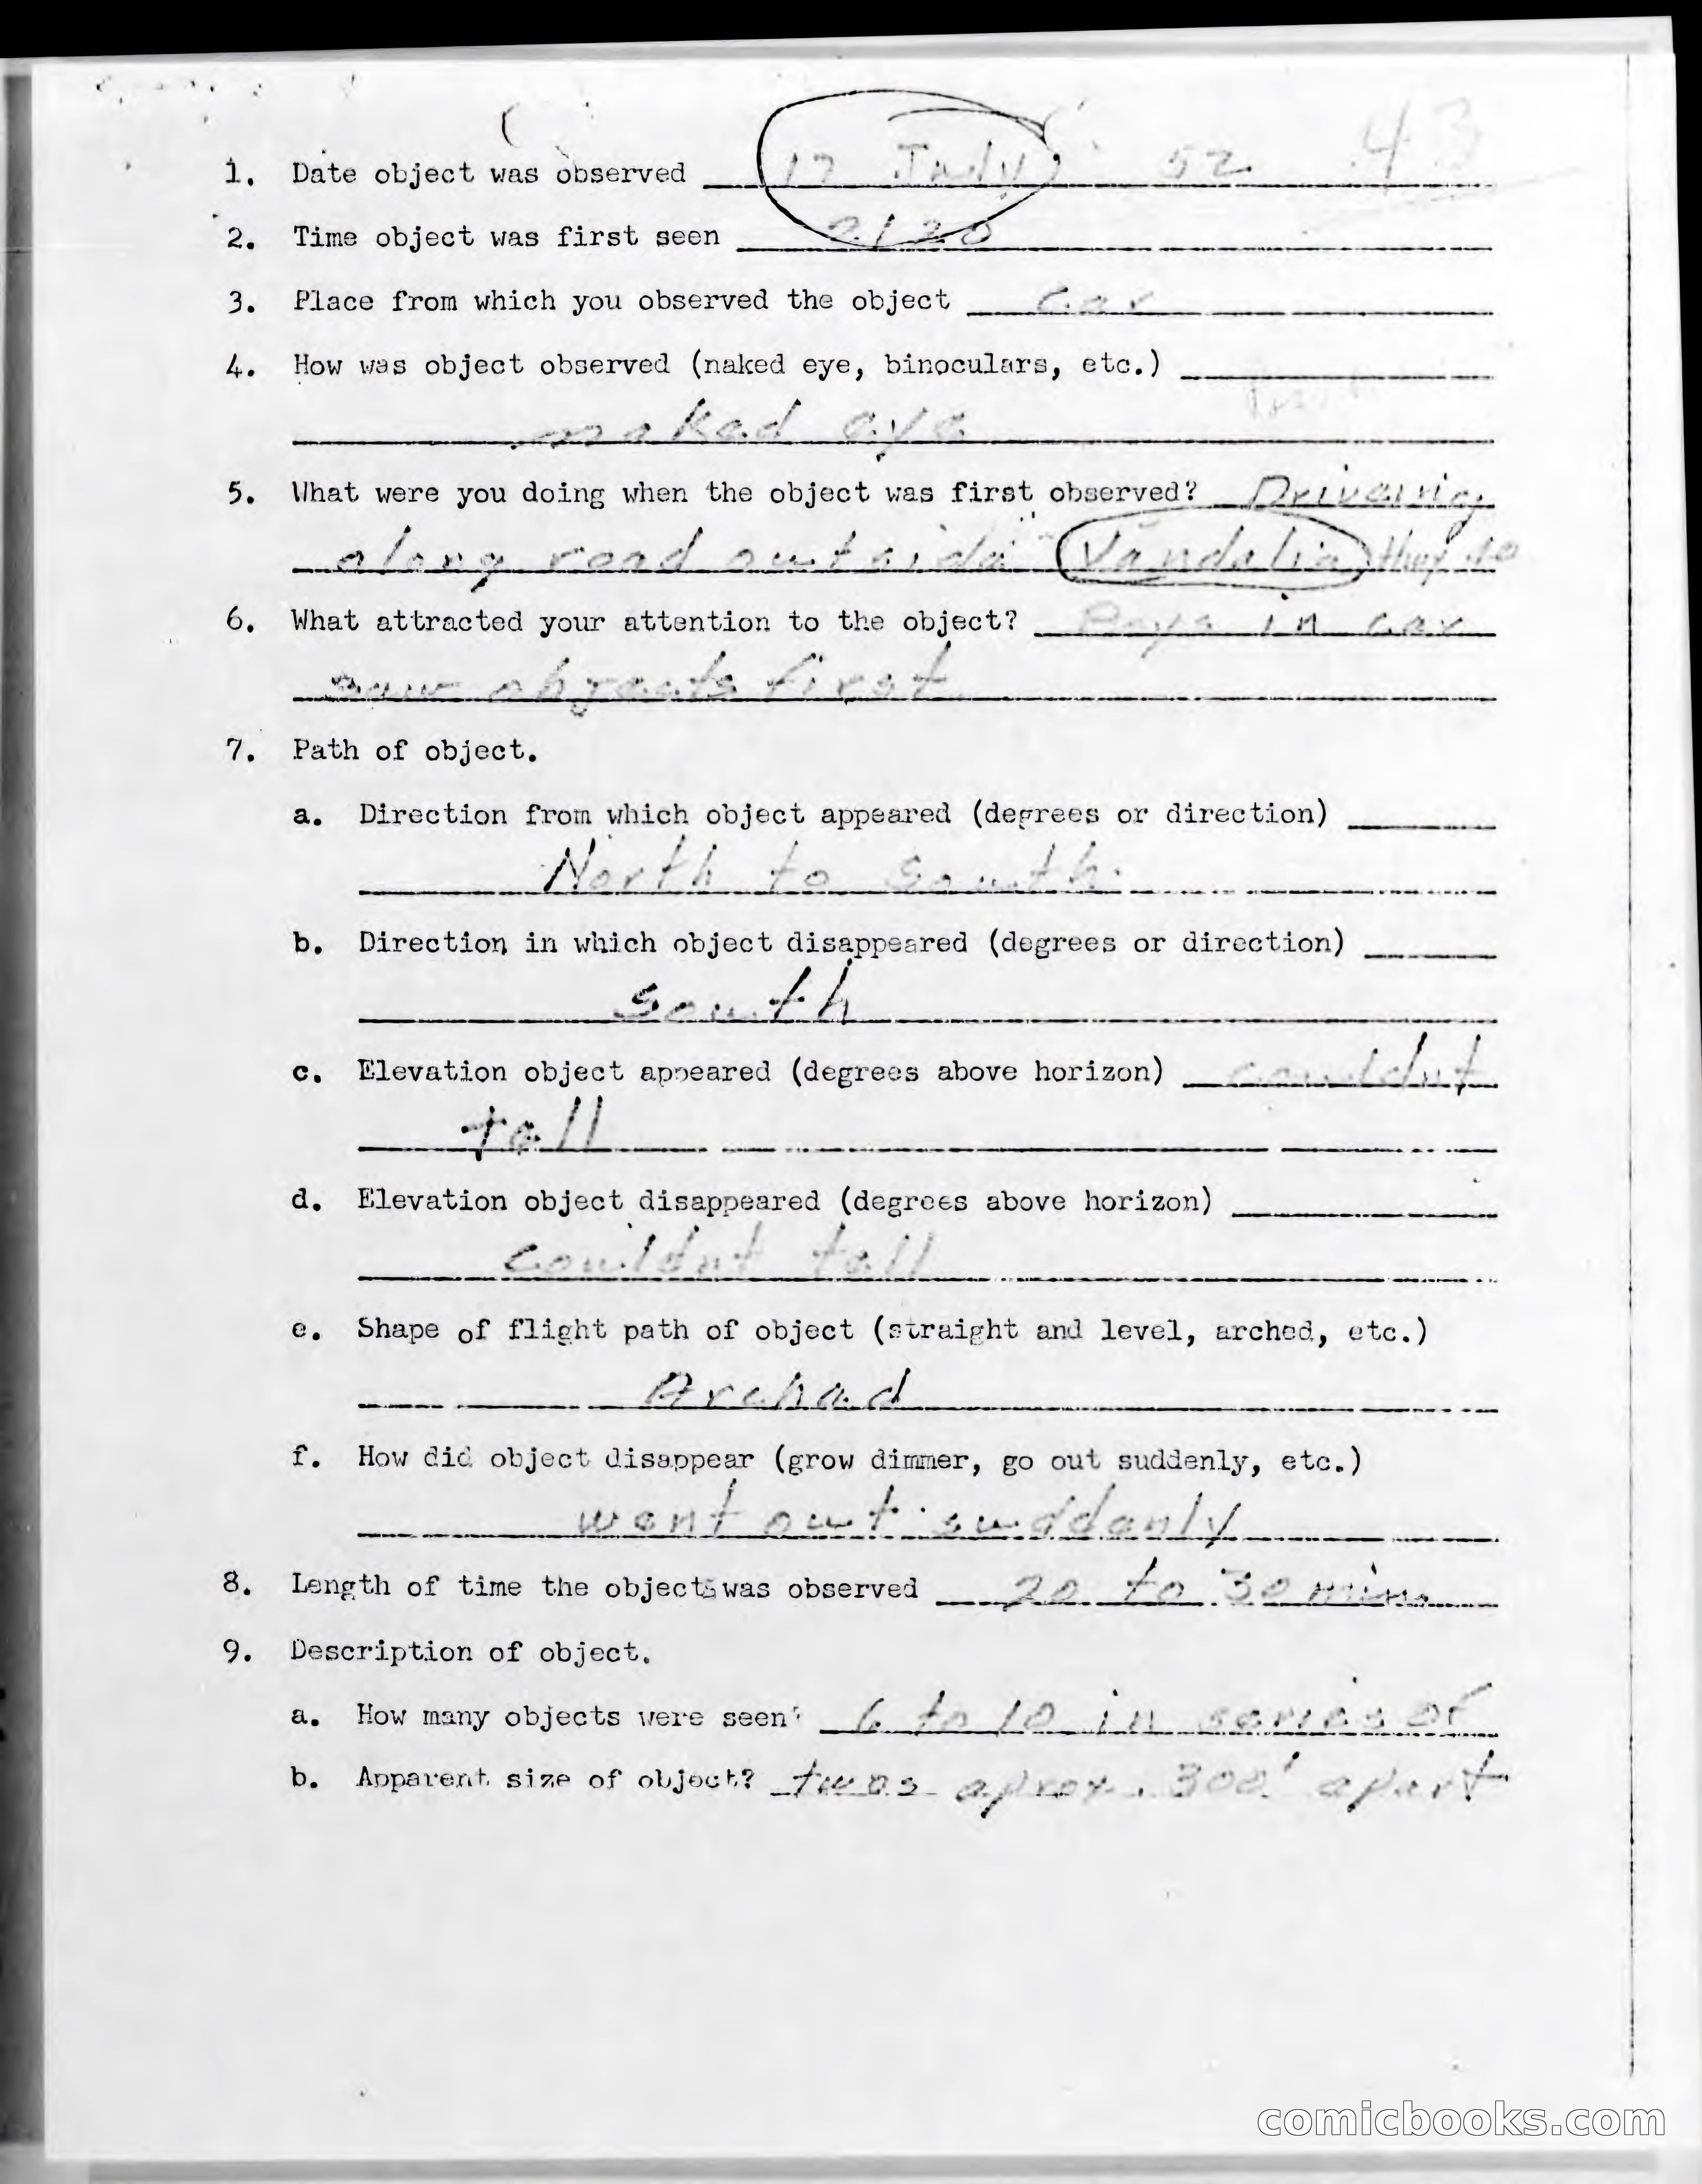 43
1. Date object was observed 17 July 52
2. Time object was first seen 2120
3. Place from which you observed the object car
4. How was object observed (naked eye, binoculars, etc.)
naked eye
5. What were you doing when the object was first observed? Driveing
along road outside Vandalia Hwy 40
6. What attracted your attention to the object? Boys in car
saw objects first
7. Path of object.
a. Direction from which object appeared (degrees or direction)
North to South
b. Direction in which object disappeared (degrees or direction)
South
c. Elevation object appeared (degrees above horizon) couldnt
tell
d. Elevation object disappeared (degrees above horizon)
couldnt tell
e. Shape of flight path of object (straight and level, arched, etc.)
Arched
f. How did object disappear (grow dimmer, go out suddenly, etc.)
went out suddenly
8. Length of time the objects was observed 20 to 30 mins
9. Description of object.
a. How many objects were seen? 6 to 10 in series of
b. Apparent size of object? twos aprox. 300' apart
comicbooks.com